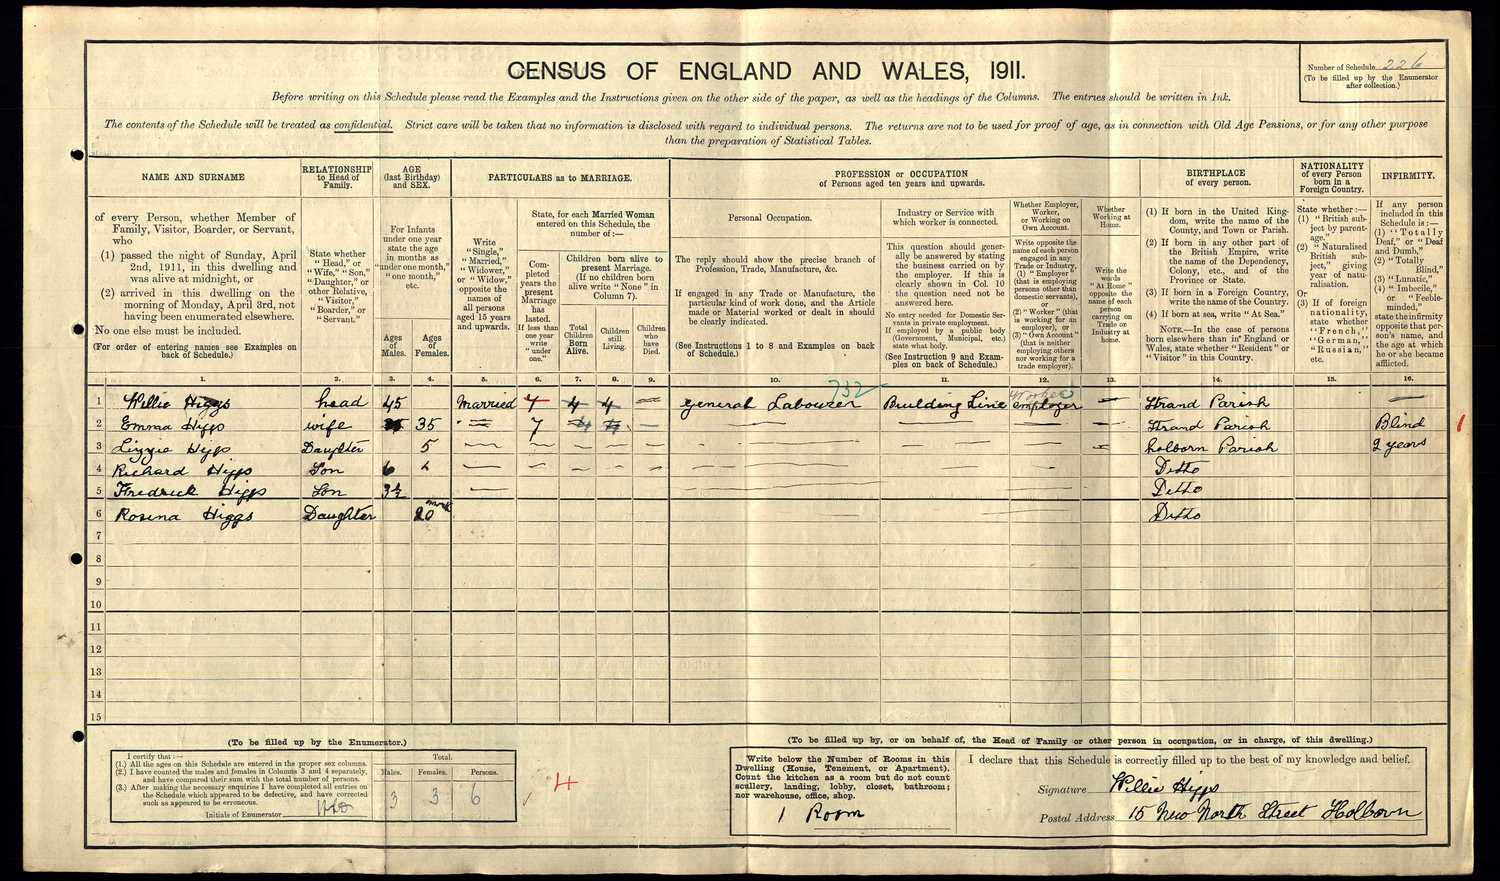 CENSUS OF ENGLAND AND WALES, 1911.
Number of Schedule 226
(To be filled up by the Enumerator
after collection.)
Before writing on this Schedule please read the Examples and the Instructions given on the other side of the paper, as well as the headings of the Columns. The entries should be written in Ink.
The contents of the Schedule will be treated as confidential. Strict care will be taken that no information is disclosed with regard to individual persons. The returns are not to be used for proof of age, as in connection with Old Age Pensions, or for any other purpose
than the preparation of Statistical Tables.
NAME AND SURNAME
of every Person, whether Member of
Family, Visitor, Boarder, or Servant,
who
(1) passed the night of Sunday, April
2nd, 1911, in this dwelling and
was alive at midnight, or
(2) arrived in this dwelling on the
morning of Monday, April 3rd, not
having been enumerated elsewhere.
No one else must be included.
(For order of entering names see Examples on
back of Schedule.)
RELATIONSHIP
to Head of
Family.
State whether
"Head," or
"Wife," "Son,"
"Daughter," or
other Relative,
"Visitor,"
"Boarder," or
"Servant."
AGE
(last Birthday)
and SEX.
For Infants
under one year
state the age
in months as
"under one month,"
"one month,"
etc.
Ages
of
Males.
Ages
of
Females.
PARTICULARS as to MARRIAGE.
Write
"Single,"
"Married,"
"Widower,"
or "Widow,"
opposite the
names of
all persons
aged 15 years
and upwards.
State, for each Married Woman
entered on this Schedule, the
number of:—
Com-
pleted
years the
present
Marriage
has
lasted.
If less than
one year
write
"under
one."
Children born alive to
present Marriage.
(If no children born
alive write "None" in
Column 7).
Total
Children
Born
Alive.
Children
still
Living.
Children
who
have
Died.
PROFESSION or OCCUPATION
of Persons aged ten years and upwards.
Personal Occupation.
The reply should show the precise branch of
Profession, Trade, Manufacture, &c.
If engaged in any Trade or Manufacture, the
particular kind of work done, and the Article
made or Material worked or dealt in should
be clearly indicated.
(See Instructions 1 to 8 and Examples on back
of Schedule.)
Industry or Service with
which worker is connected.
This question should gener-
ally be answered by stating
the business carried on by
the employer. If this is
clearly shown in Col. 10
the question need not be
answered here.
No entry needed for Domestic Ser-
vants in private employment.
If employed by a public body
(Government, Municipal, etc.)
state what body.
(See Instruction 9 and Exam-
ples on back of Schedule.)
Whether Employer,
Worker,
or Working on
Own Account.
Write opposite the
name of each person
engaged in any
Trade or Industry,
(1) "Employer"
(that is employing
persons other than
domestic servants),
or
(2) "Worker" (that
is working for an
employer), or
(3) "Own Account"
(that is neither
employing others
nor working for a
trade employer).
Whether
Working at
Home.
Write the
words
"At Home"
opposite the
name of each
person
carrying on
Trade or
Industry at
home.
BIRTHPLACE
of every person.
(1) If born in the United King-
dom, write the name of the
County, and Town or Parish.
(2) If born in any other part of
the British Empire, write
the name of the Dependency,
Colony, etc., and of the
Province or State.
(3) If born in a Foreign Country,
write the name of the Country.
(4) If born at sea, write "At Sea."
NOTE.—In the case of persons
born elsewhere than in England or
Wales, state whether "Resident" or
"Visitor" in this Country.
NATIONALITY
of every Person
born in a
Foreign Country.
State whether:—
(1) "British sub-
ject by parent-
age."
(2) "Naturalised
British sub-
ject," giving
year of natu-
ralisation.
Or
(3) If of foreign
nationality,
state whether
"French,"
"German,"
"Russian,"
etc.
INFIRMITY.
If any person
included in this
Schedule is:—
(1) "Totally
Deaf," or "Deaf
and Dumb,"
(2) "Totally
Blind,"
(3) "Lunatic,"
(4) "Imbecile,"
or "Feeble-
minded,"
state the infirmity
opposite that per-
son's name, and
the age at which
he or she became
afflicted.
1. 2. 3. 4. 5. 6. 7. 8. 9. 10. 11. 12. 13. 14. 15. 16.
732
Worker
1 Willie Higgs head 45 Married 7 4 4 — general Labourer Building Line employer — Strand Parish —
2 Emma Higgs wife 35 — 7 4 4 — — — Strand Parish Blind
3 Lizzie Higgs Daughter 5 — Holborn Parish 2 years
4 Richard Higgs Son 6 — Ditto
5 Fredrick Higgs Son 3½ — Ditto
6 Rosina Higgs Daughter 20 Ditto
7
8
9
10
11
12
13
14
15
(To be filled up by the Enumerator.)
I certify that:—
(1.) All the ages on this Schedule are entered in the proper sex columns.
(2.) I have counted the males and females in Columns 3 and 4 separately,
and have compared their sum with the total number of persons.
(3.) After making the necessary enquiries I have completed all entries on
the Schedule which appeared to be defective, and have corrected
such as appeared to be erroneous.
Initials of Enumerator
Total.
Males. Females. Persons.
3 3 6
4
(To be filled up by, or on behalf of, the Head of Family or other person in occupation, or in charge, of this dwelling.)
Write below the Number of Rooms in this
Dwelling (House, Tenement, or Apartment).
Count the kitchen as a room but do not count
scullery, landing, lobby, closet, bathroom;
nor warehouse, office, shop.
1 Room
I declare that this Schedule is correctly filled up to the best of my knowledge and belief.
Signature Willie Higgs
Postal Address 15 New North Street Holborn